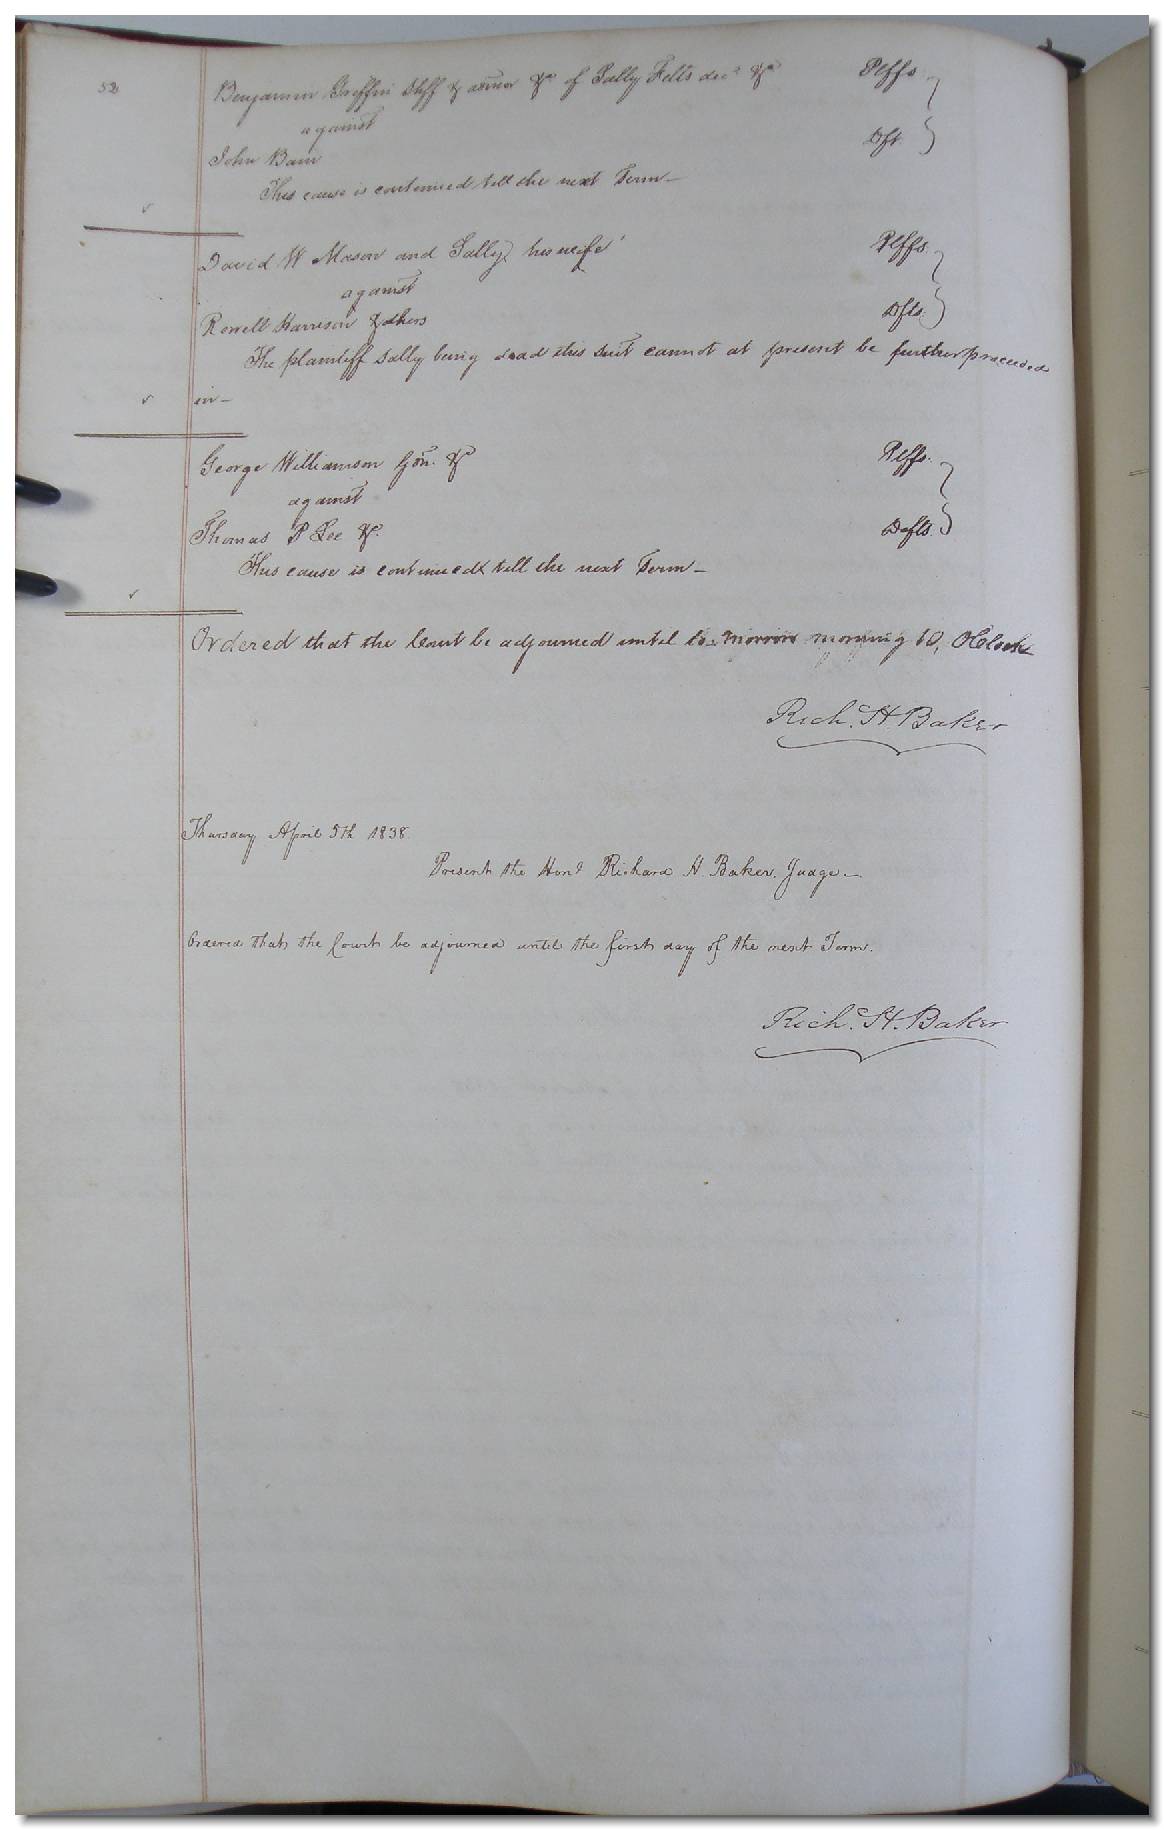 52
Benjamin Griffin Shff & admor &c of Sally Felts decd &c Plffs.
against
John Bain Dft.
This cause is continued till the next Term
David W Mason and Sally his wife Plffs.
against
Rowell Harrison & others Dfts.
The plaintiff Sally being dead this suit cannot at present be further proceeded
in
George Williamson Gdn. &c Plffs.
against
Thomas P Lee &c. Defts.
This cause is continued till the next Term
Ordered that the Court be adjourned until to-morrow morning 10, OClock
Rich. H. Baker
Thursday April 5th 1838.
Present the Hond Richard H. Baker, Judge.
Ordered that the Court be adjourned until the first day of the next Term.
Rich. H. Baker